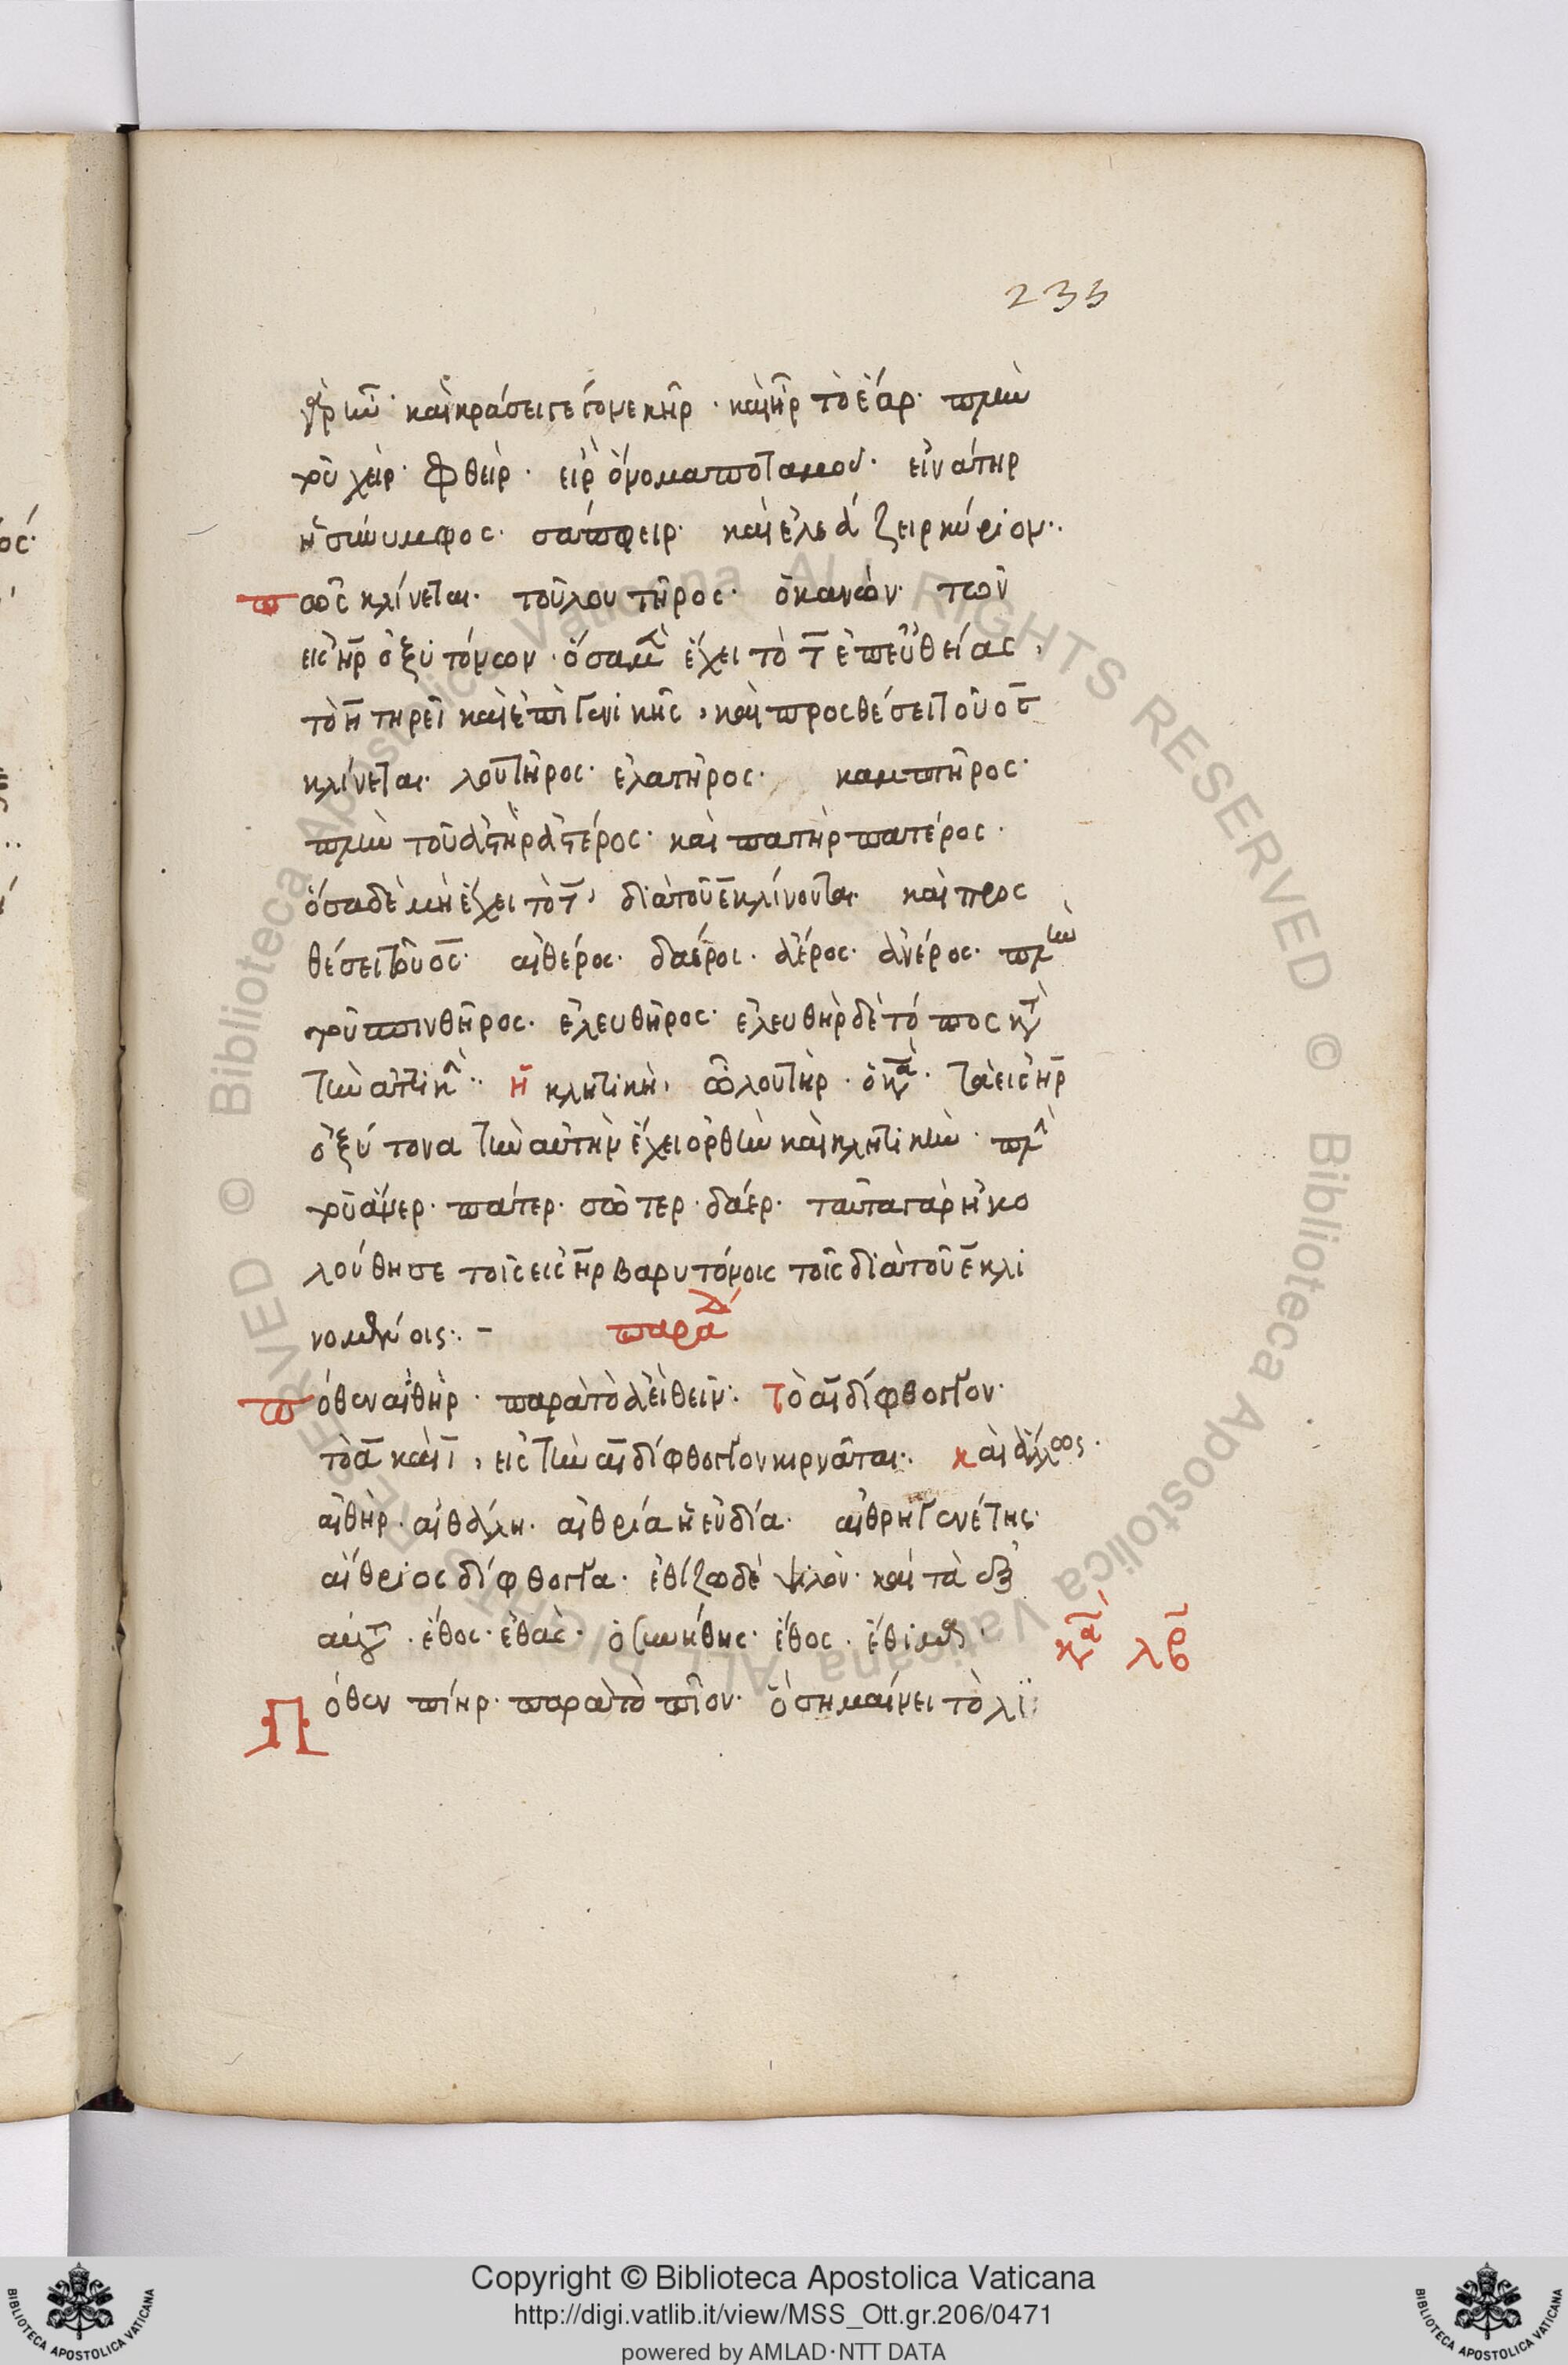 235
κέαρ καὶ κράσει γέγονε κῆρ· καὶ ἦρ τὸ ἔαρ· πλὴν
τοῦ χείρ· φθείρ· εἲρ ὄνομα ποταμοῦ· εἰνάτηρ
ἡ σύνυμφος· σάπφειρ· καὶ ἐλεάζειρ κύριον:
πῶς κλίνεται· τοῦ λουτῆρος· ὁ κανών· τῶν
εἰς ηρ ὀξυτόνων· ὅσα μὲν ἔχει τὸ τ ἐπ' εὐθείας,
τὸ η τηρεῖ καὶ ἐπὶ γενικῆς, καὶ προσθέσει τοῦ ος
κλίνεται· λουτῆρος· ἐλατῆρος· καμπτῆρος·
πλὴν τοῦ ἀστὴρ ἀστέρος· καὶ πατὴρ πατέρος·
ὅσα δὲ μὴ ἔχει τὸ τ, διὰ τοῦ ε κλίνονται καὶ προσ
θέσει τοῦ ος· αἰθέρος· δαέρος· ἀέρος· ἀνέρος· πλὴν
τοῦ σπινθῆρος· ἐλευθῆρος· ἐλευθὴρ δὲ τόπος κατὰ
τὴν ἀττικὴν: ἡ κλητικὴ, ὦ λουτήρ· ὁ κανών· τὰ εἰς ηρ
ὀξύτονα τὴν αὐτὴν ἔχει ὀρθὴν καὶ κλητικὴν· πλὴν
τοῦ ἄνερ· πάτερ· σῶτερ· δᾶερ· ταῦτα γὰρ ἠκο
λούθησε τοῖς εἰς ηρ βαρυτόνοις τοῖς διὰ τοῦ ε κλι
νομένοις: –
πόθεν αἰθήρ· παρὰ τὸ ἀεὶ θεῖν: τὸ αι δίφθογγον·
τὸ α καὶ ι, εἰς τὴν αι δίφθογγον κιρνᾶται: καὶ ἄλλως·
αἰθήρ· αἰθάλη· αἰθρία ἡ εὐδία· αἰθρηγενέτης·
αἴθριος δίφθογγα· ἐθίζω δὲ ψιλὸν· καὶ τὰ ἐξ
αὐτοῦ· ἔθος· ἐθὰς· ὁ συνήθης· ἔθος· ἔθιμον·
Πόθεν πίηρ· παρὰ τὸ πῖον· ὃ σημαίνει τὸ λι
Copyright © Biblioteca Apostolica Vaticana
http://digi.vatlib.it/view/MSS_Ott.gr.206/0471
powered by AMLAD·NTT DATA